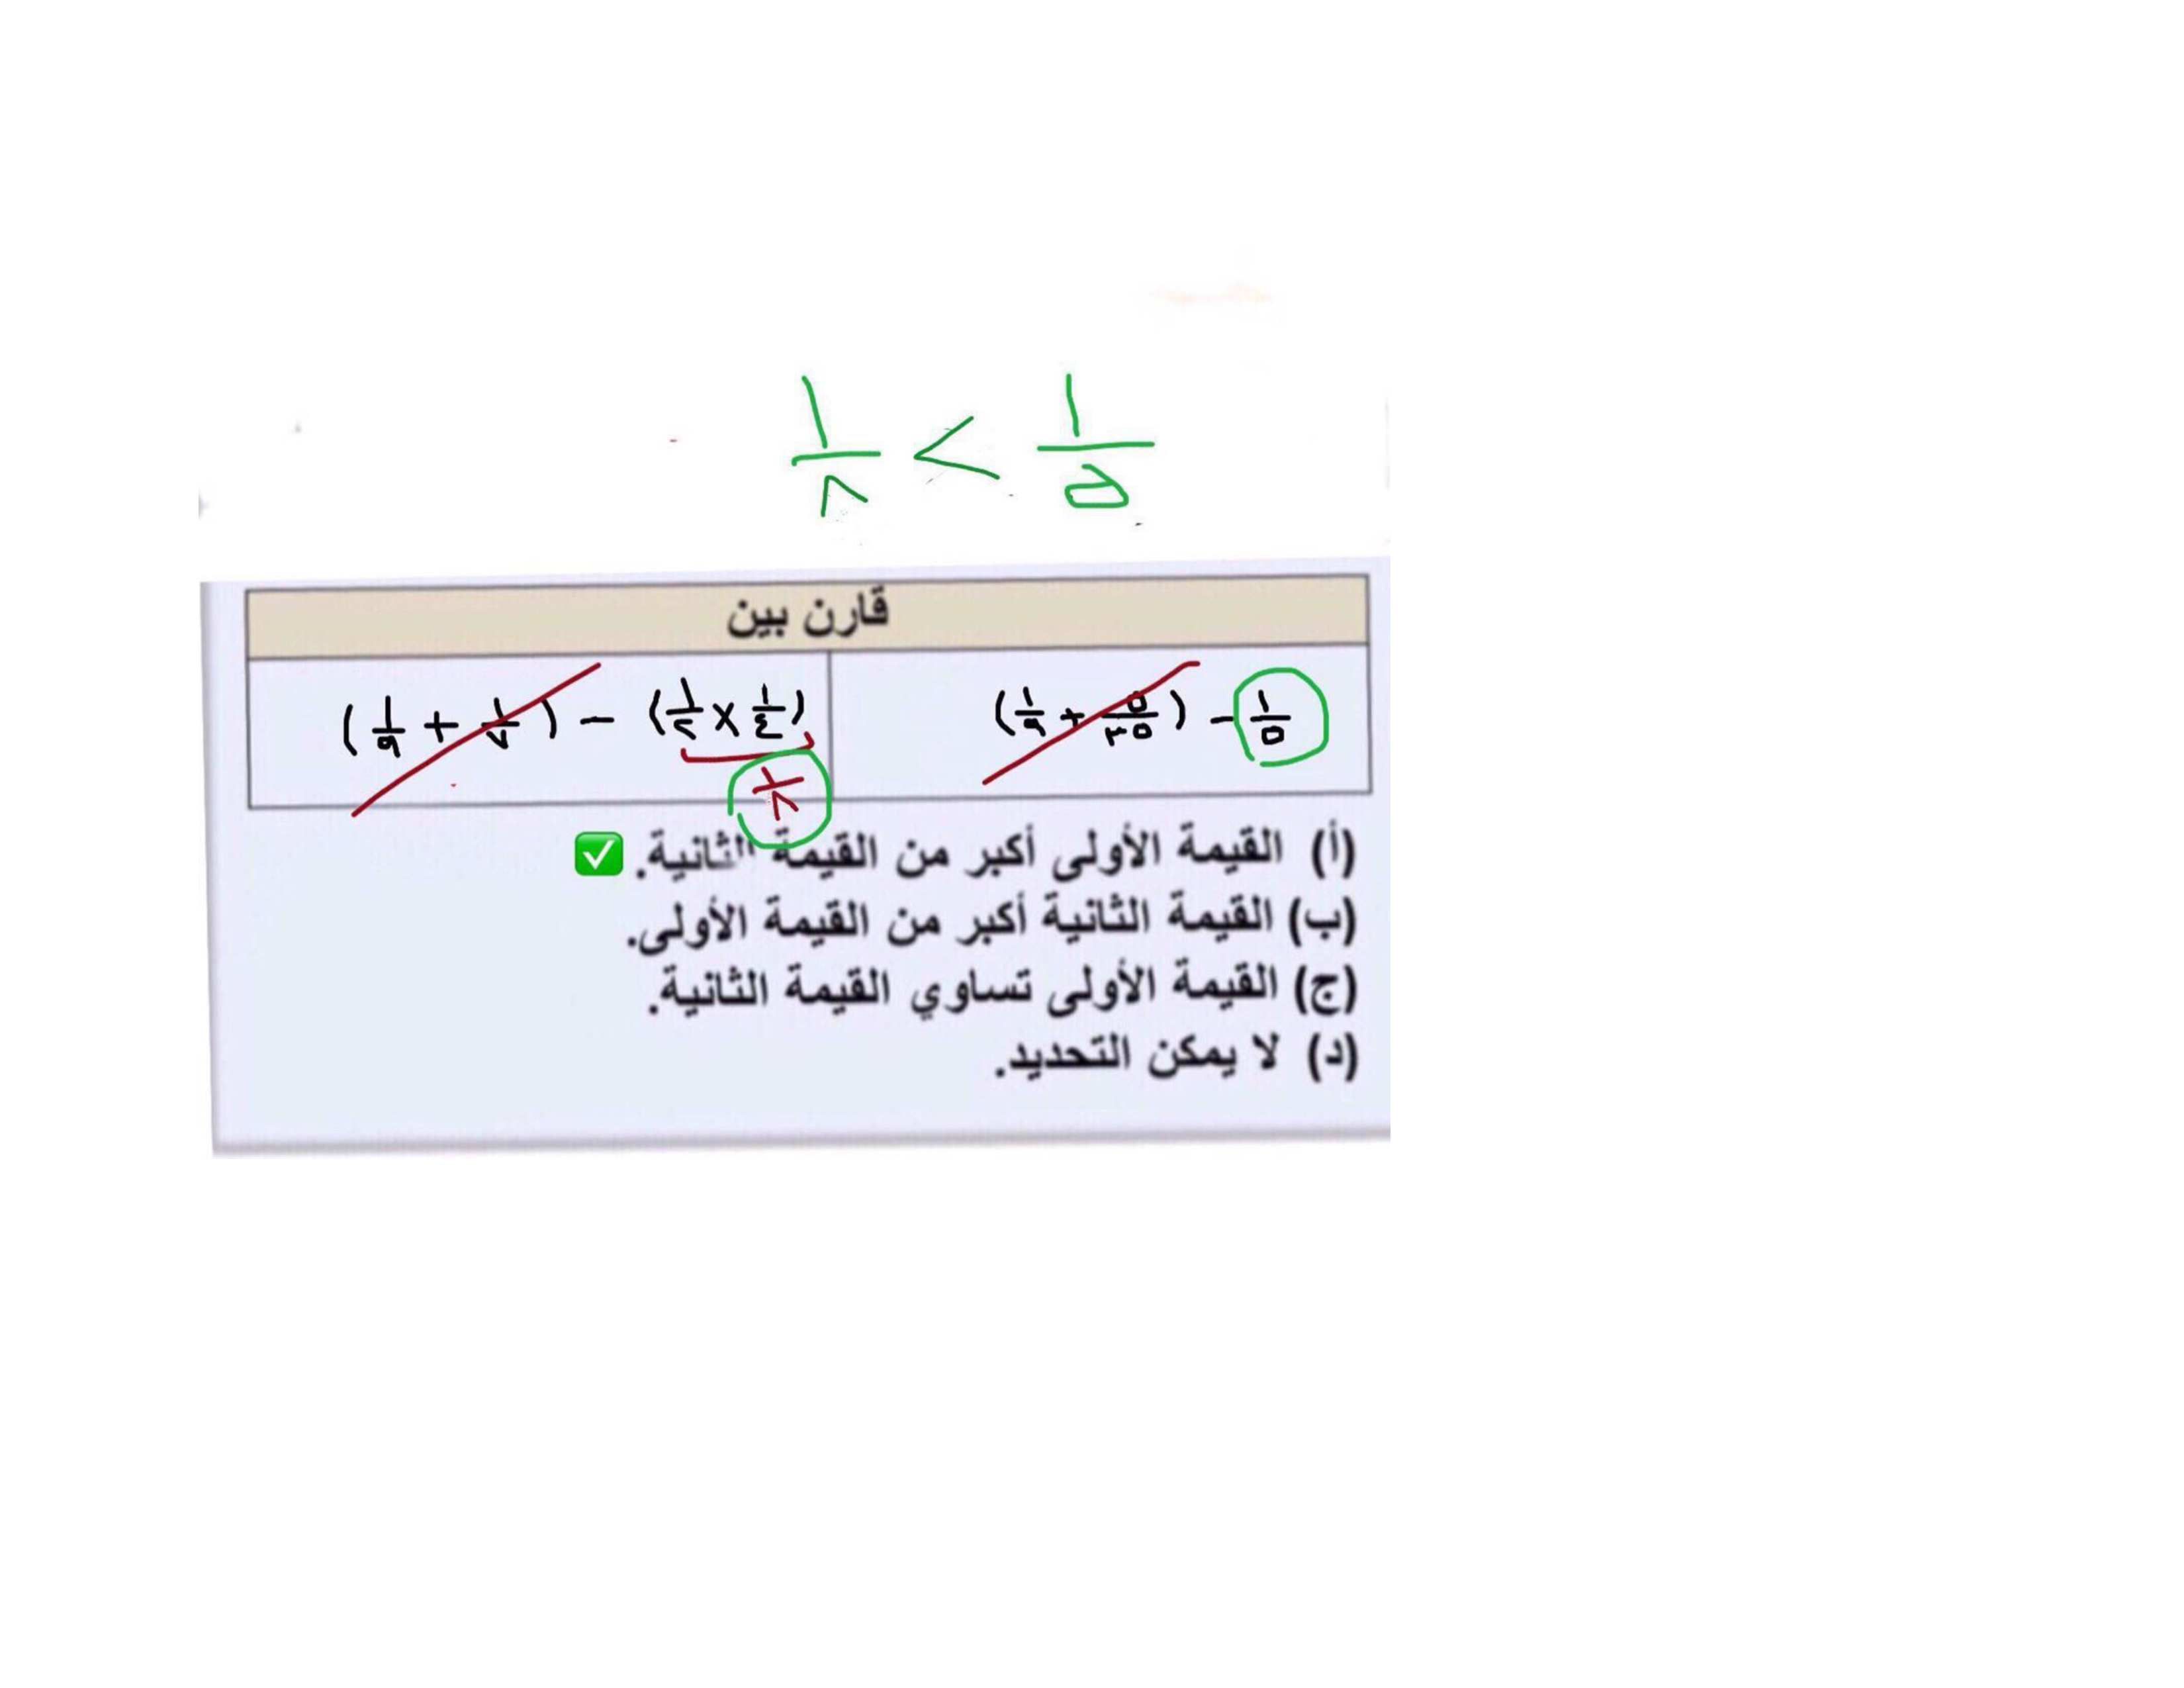 ١/٨ < ١/٥
قارن بين
١/٥ - (٥/٣٥ + ١/٩)
(١/٤ × ١/٢) - (١/٧ + ١/٩)
١/٨
(أ) القيمة الأولى أكبر من القيمة الثانية. ✅
(ب) القيمة الثانية أكبر من القيمة الأولى.
(ج) القيمة الأولى تساوي القيمة الثانية.
(د) لا يمكن التحديد.